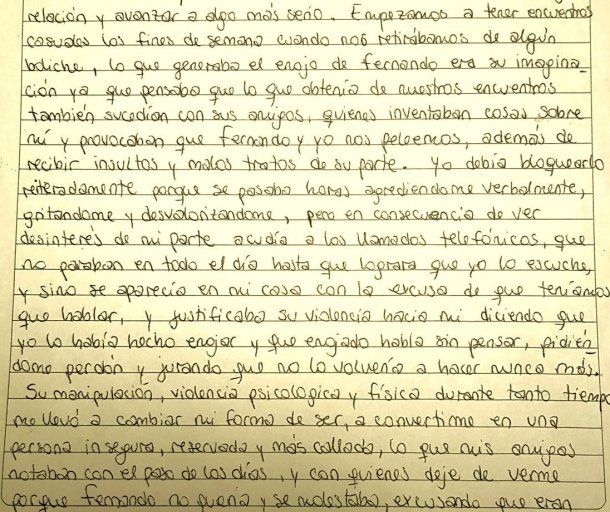 relación y avanzar a algo más serio. Empezamos a tener encuentros
casuales los fines de semana cuando nos retirábamos de algún
boliche, lo que generaba el enojo de fernando era su imagina_
ción ya que pensaba que lo que obtenía de nuestros encuentros
también sucedían con sus amigos, quienes inventaban cosas sobre
mí y provocaban que fernando y yo nos peleemos, además de
recibir insultos y malos tratos de su parte. Yo debía bloquearlo
reiteradamente porque se pasaba horas agrediendome verbalmente,
gritandome y desvalorizandome, pero en consecuencia de ver
desinterés de mi parte acudía a los llamados telefónicos, que
no paraban en todo el día hasta que lograra que yo lo escuche,
y sino se aparecía en mi casa con la excusa de que teníamos
que hablar, y justificaba su violencia hacia mi diciendo que
yo lo había hecho enojar y que enojado habla sin pensar, pidién_
dome perdón y jurando que no lo volvería a hacer nunca más.
Su manipulación, violencia psicologica y física durante tanto tiempo
me llevó a cambiar mi forma de ser, a convertirme en una
persona insegura, reservada y más callada, lo que mis amigos
notaban con el paso de los días, y con quienes deje de verme
porque fernando no quería y se molestaba, excusando que eran